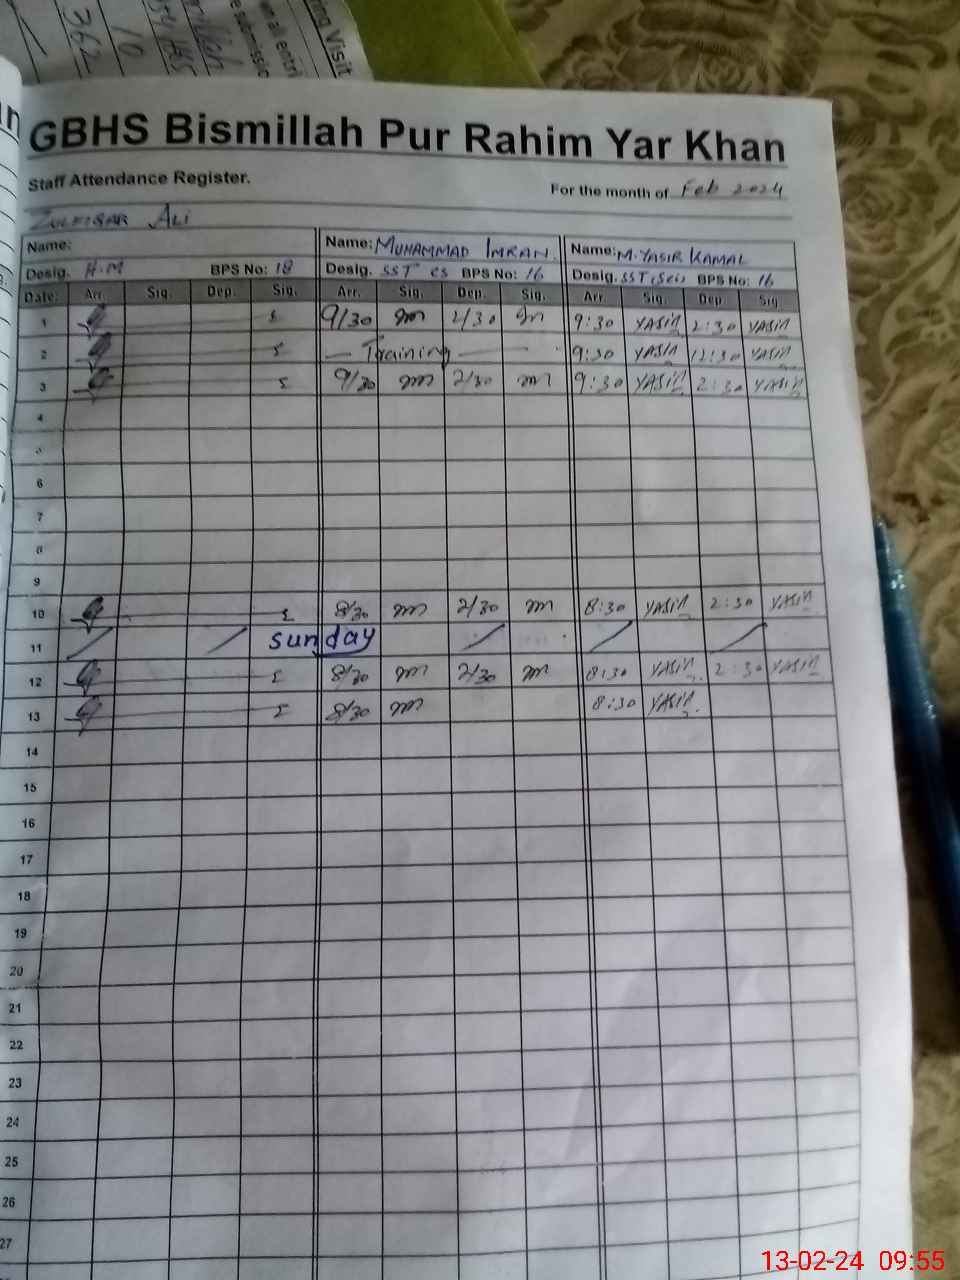 GBHS Bismillah Pur Rahim Yar Khan
Staff Attendance Register.
For the month of Feb 2024
ZULFIQAR ALI
Name: Name: MUHAMMAD IMRAN Name: M. YASIR KAMAL
Desig. H.M BPS No: 18 Desig. SST CS BPS No: 16 Desig. SST (Sci) BPS No: 16
Date: Arr. Sig. Dep. Sig. Arr. Sig. Dep. Sig. Arr. Sig. Dep. Sig.
1 9/30 2/30 9:30 YASIR 2:30 YASIR
2 Training 9:30 YASIR 12:30 YASIR
3 9/30 2/30 9:30 YASIR 2:30 YASIR
4
5
6
7
8
9
10 8/30 2/30 8:30 YASIR 2:30 YASIR
11 Sunday
12 8/30 2/30 8:30 YASIR 2:30 YASIR
13 8/30 8:30 YASIR
14
15
16
17
18
19
20
21
22
23
24
25
26
27
13-02-24 09:55